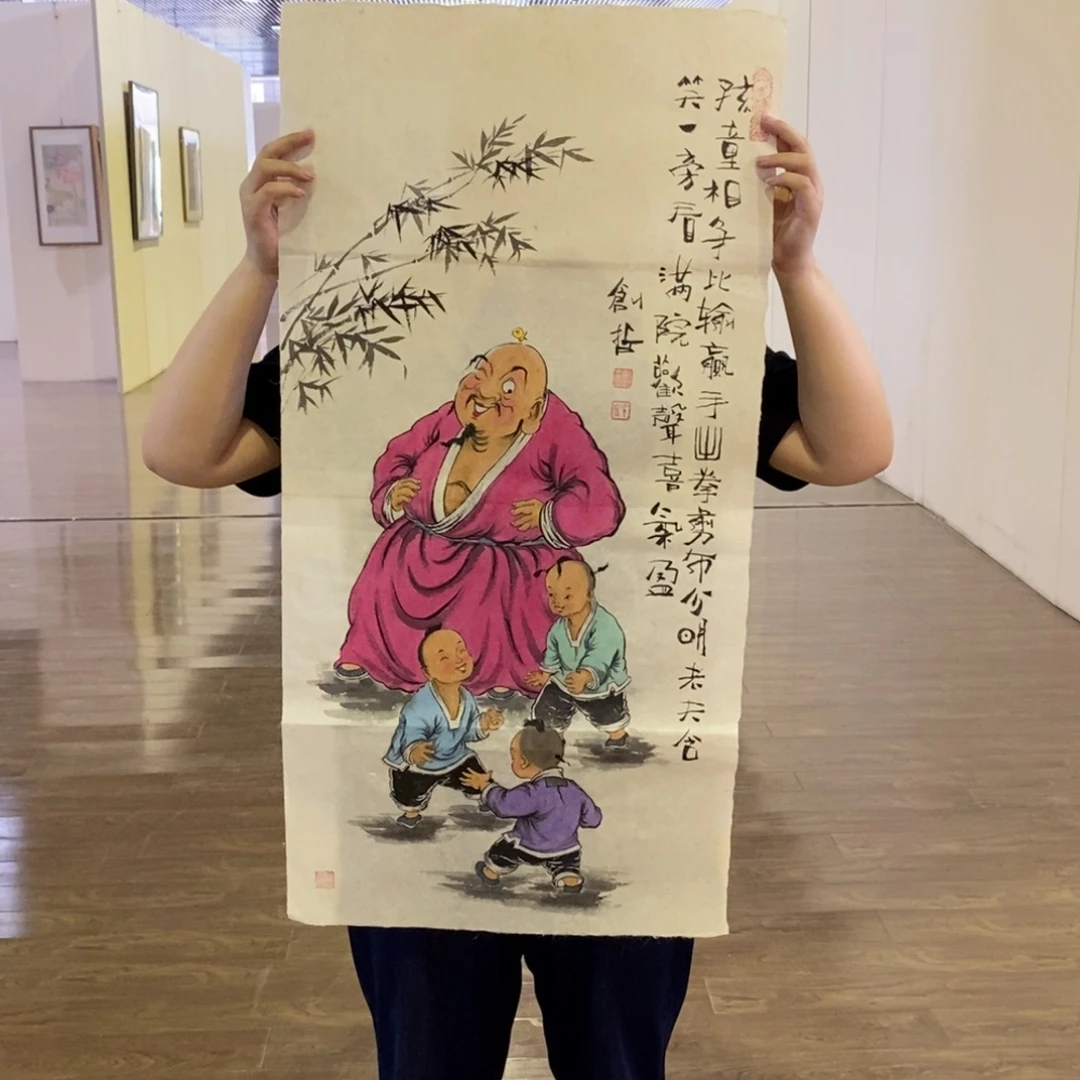 孩童相争比输赢手出拳剪布分明老夫含
笑一旁看满院歡聲喜氣盈
創哲